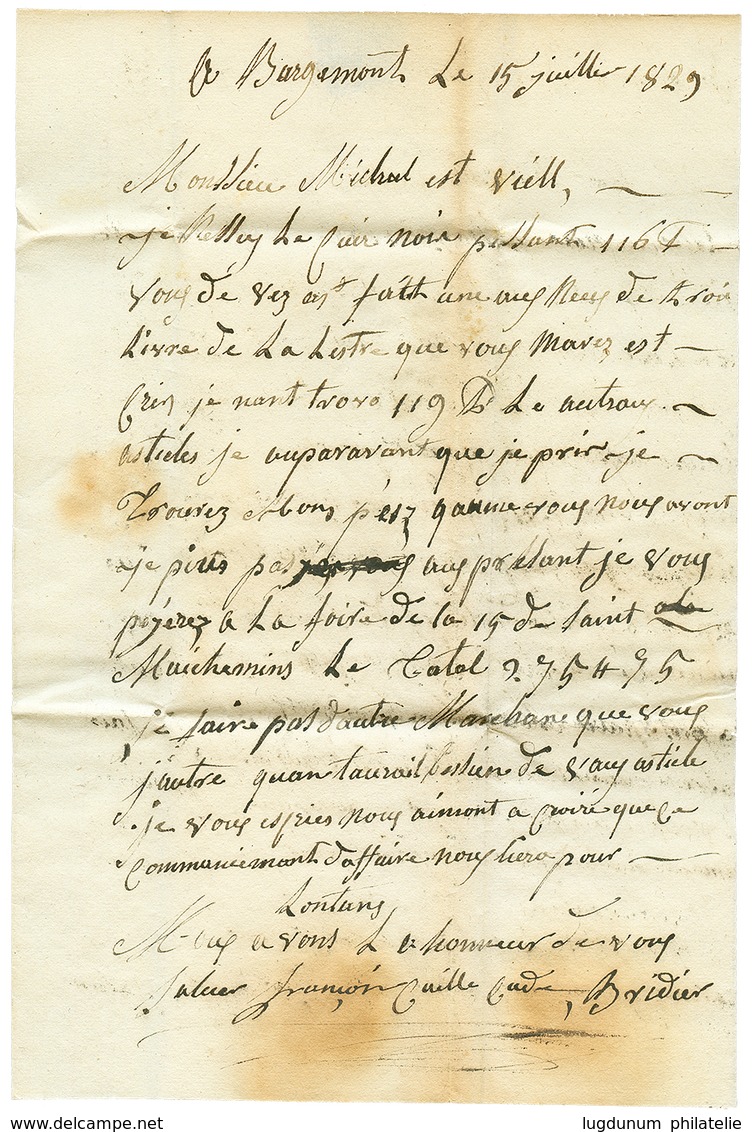 A Bargemont Le 15 juillie 1829
Monssieu Michel est viell,
je Ressus Le Cuir noir pessant 116 ₶
vous de vez fait une aus de troi
Livre de La Lestre que vous Mavez est
Crit je nant trovo 119 ₶ Le autrour
asticles je auparavant que je prir je
Trouvez Mons quaume vous nous avont
je puis pas aus present je vous
peyerez a La foire de la 15 de saint
Maichemins Le Total 275 ₶ 75
je faire pas d'autre Marchan que vous
j'autre quan taurail bessien de vaus asticle
je vous espries nous aimont a croiré que Ce
Commancemant d'affaire nous sera pour
Lontans
Nous avons L honneur de vous
saluer françois Caille Cade, Bridier
lugdunum philatelie